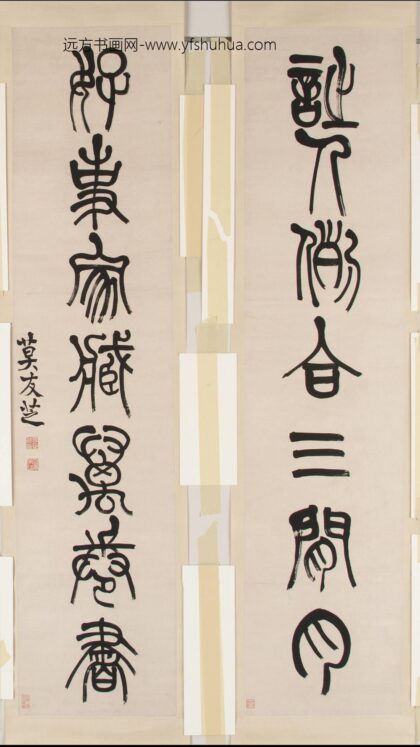 远方书画网-www.yfshuhua.com
詩人合三閒月
好事家藏萬卷書
莫友芝